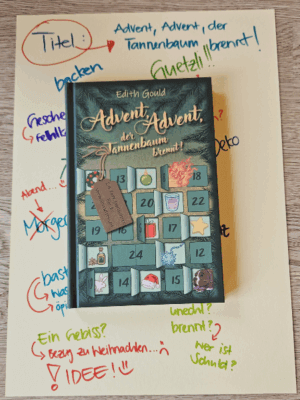 Titel:
Advent, Advent, der
Tannenbaum brennt!
backen
Guetzli!!
Edith Gould
Advent, Advent,
der
Tannenbaum
brennt!
Gesche
Fehl
?
Deko
Abend...
Morge
13
18
20
22
19
16
17
24
12
14
15
bast
was
unecht?
brennt?
wer ist
Schuld?
Ein Gebiss?
Bezug zu Weihnachten...
! IDEE!